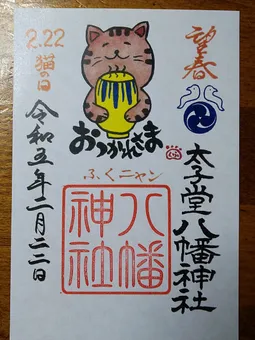 望春
太子堂八幡神社
おつかれさま
ふくニャン
八幡神社
2.22
猫の日
令和五年二月二二日